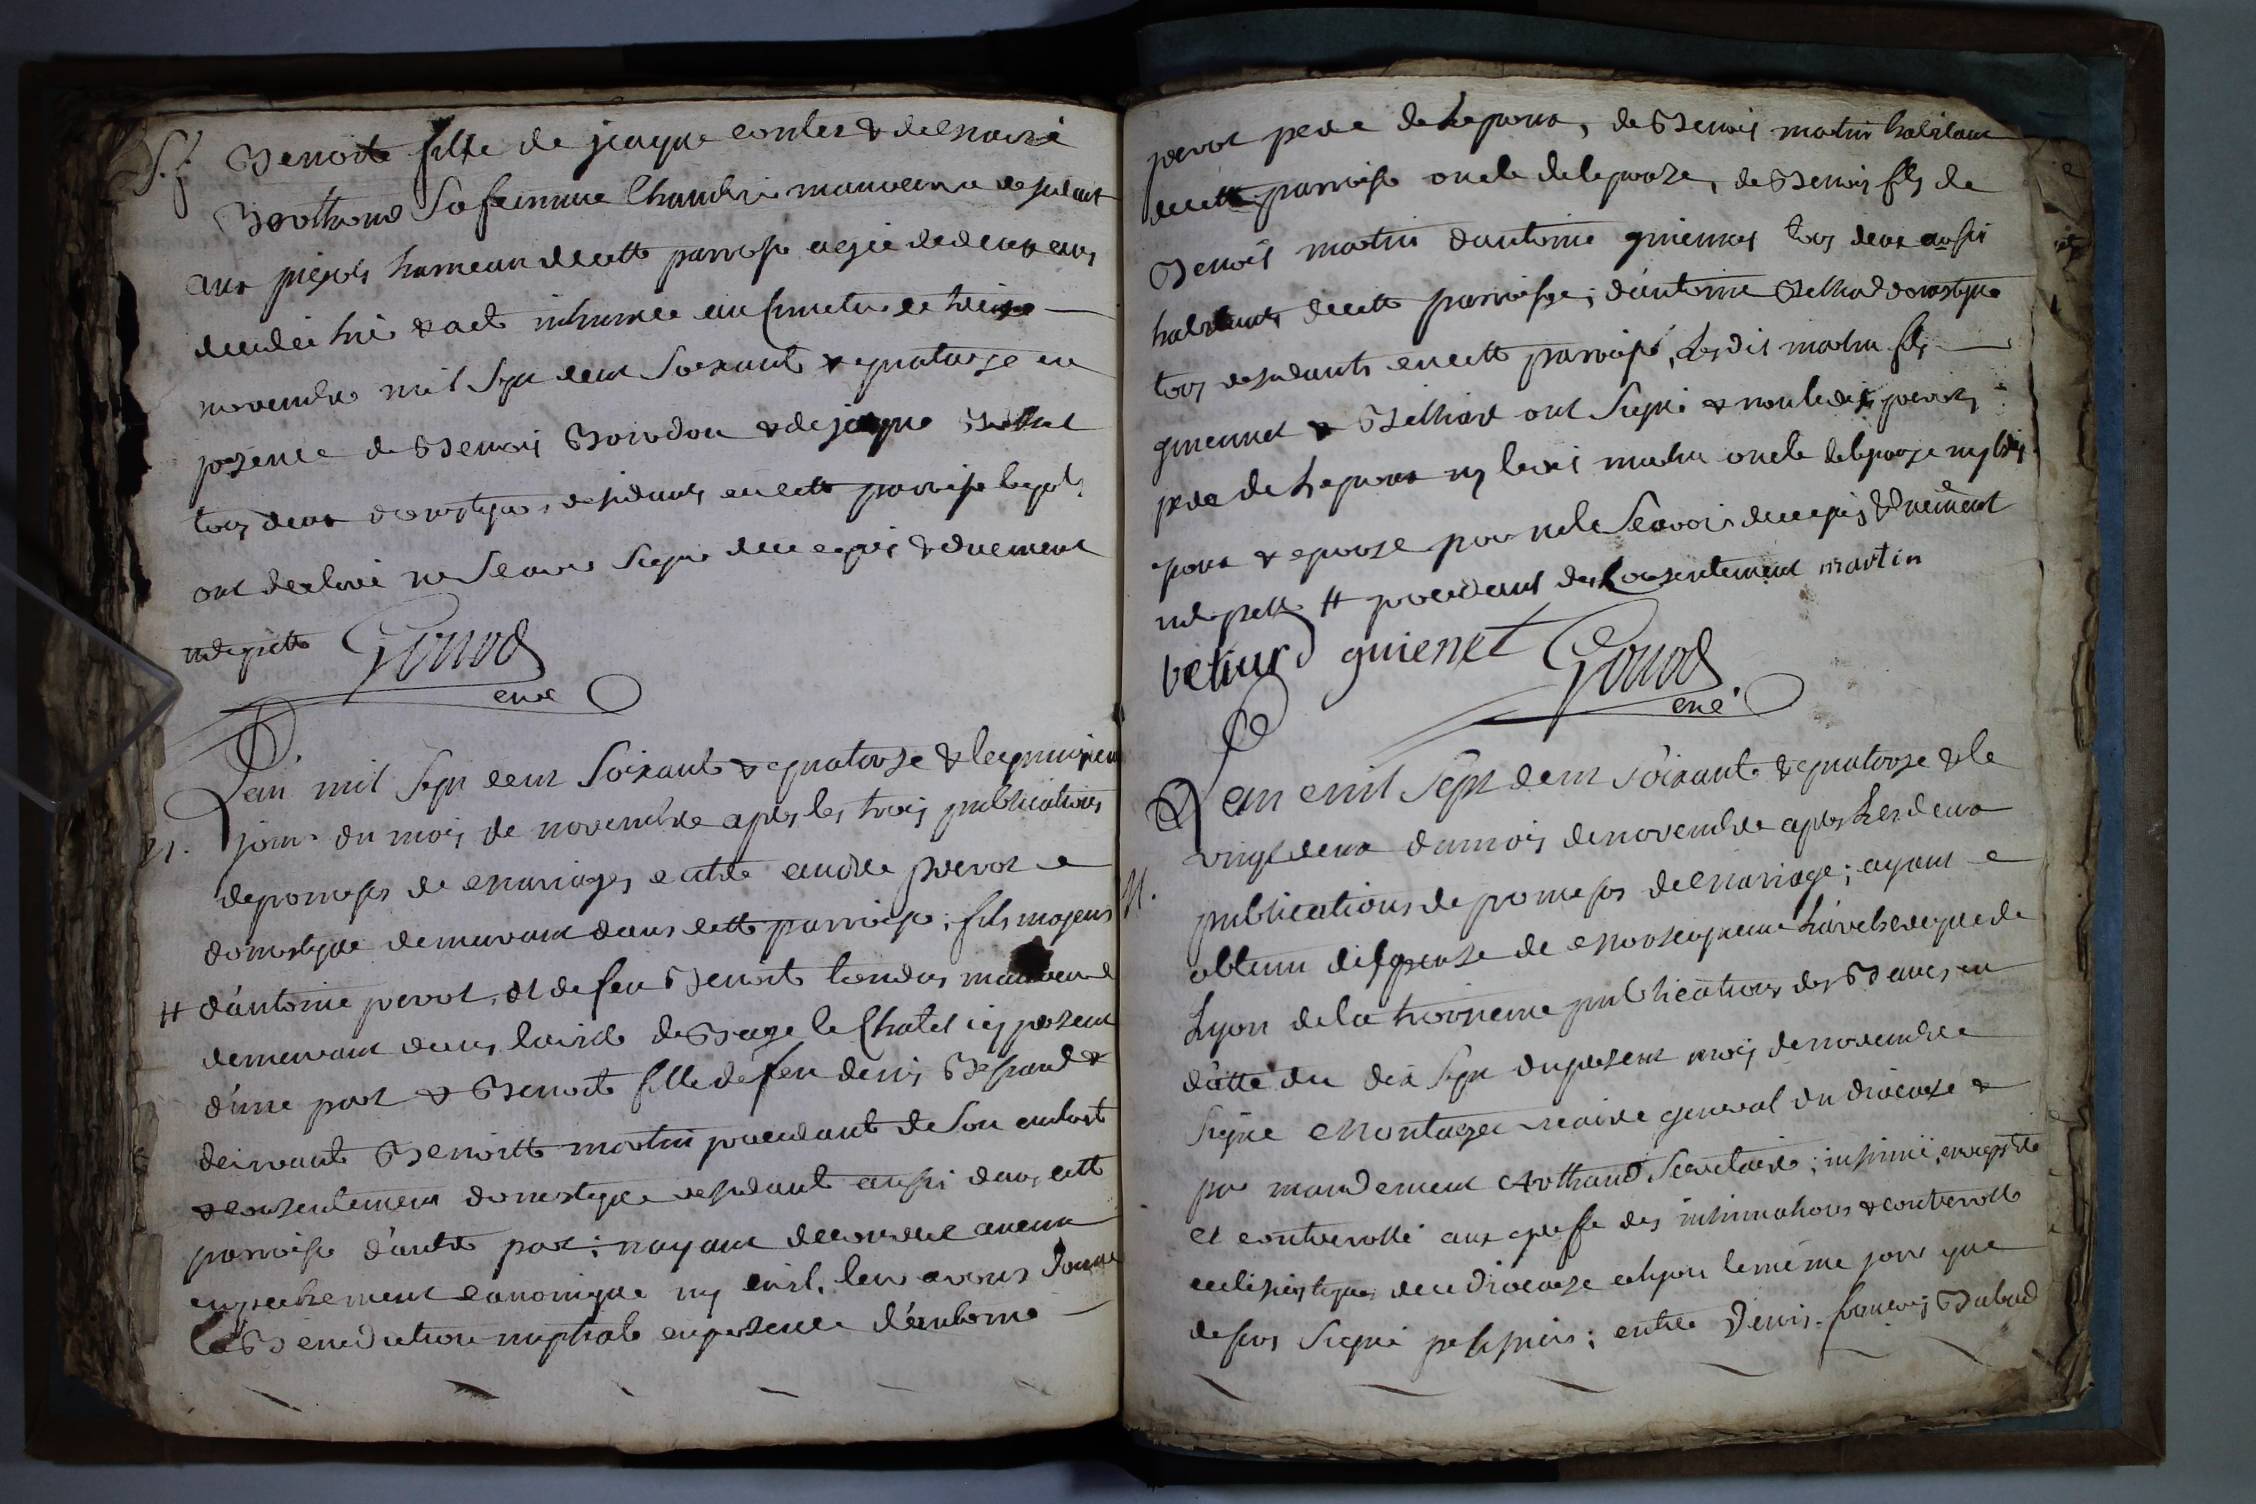 S. f.
Benoite fille de jaque contet & de Marie
Berthand Sa femme Chaudri manoeuvre residant
aux pugets hameau de cette parroisse agée de deux ans
decedée hier & a eté inhumée au cimetiere le treize
novembre mil Sept cent Soixante & quatorze en
présence de Benois Bourdon & de jaque
tous deux domestiques residants en cette parroisse lequels
ont declaré ne Scavoir Signer de ce enquis & duement
interpellés Gonod
curé
L'an mil Sept cent Soixante & quatorze & le quinzieme
M.
jour du mois de novembre après les trois publications
de promesses de Mariages entre andré perrot
domestique demeurant dans cette parroisse; fils majeur
# d'antoine perrot, et de feu Benoite tondus manoeuvre
demeurant dans la ville de Baage le Chatel icy présent
d'une part & Benoite fille de feu denis Bessard &
de vivante Benoitte martin procedante de Son
& consentement domestique residante aussi dans cette
parroisse d'autre part; n'ayant decouvert aucun
empechement canonique ny civil, leur avons donné
la Bénédiction nuptiale en présence d'antoine
perrot pere de L'epoux, de Benois martin habitant
de cette parroisse oncle de lepouze, de Benois fils de
Benois martin d'antoine guiennet tous deux aussi
habitants de cette parroisse; d'antoine Belliard domestique
tous residants en cette parroisse, Lesdits martin fils
guiennet & Belliard ont Signé & non ledit perrot
pere de L'epoux ny benois martin oncle de lepouze ny lesdits
epoux & epouze pour ne le Scavoir de ce enquis & duement
interpellés # procedant de Consentement martin
beliard guienet Gonod
curé
L'an mil Sept cent soixante & quatorze & le
vingt deux du mois de novembre après Les deux
M.
publications de promesses de Mariage; ayant
obtenu dispense de Monseigneur L'archeveque de
Lyon de la troisieme publication des Bans, en
datte du dix Sept du présent mois de novembre
Signé Montazet vicaire general du dioceze &
par mandement Arthaud Secretaire; insinué, enregistré
et controllé aux greffe des insinuations & controlle
eclésiastiques de ce dioceze à Lyon le même jour que
dessus Signé; entre Denis françois Dubud